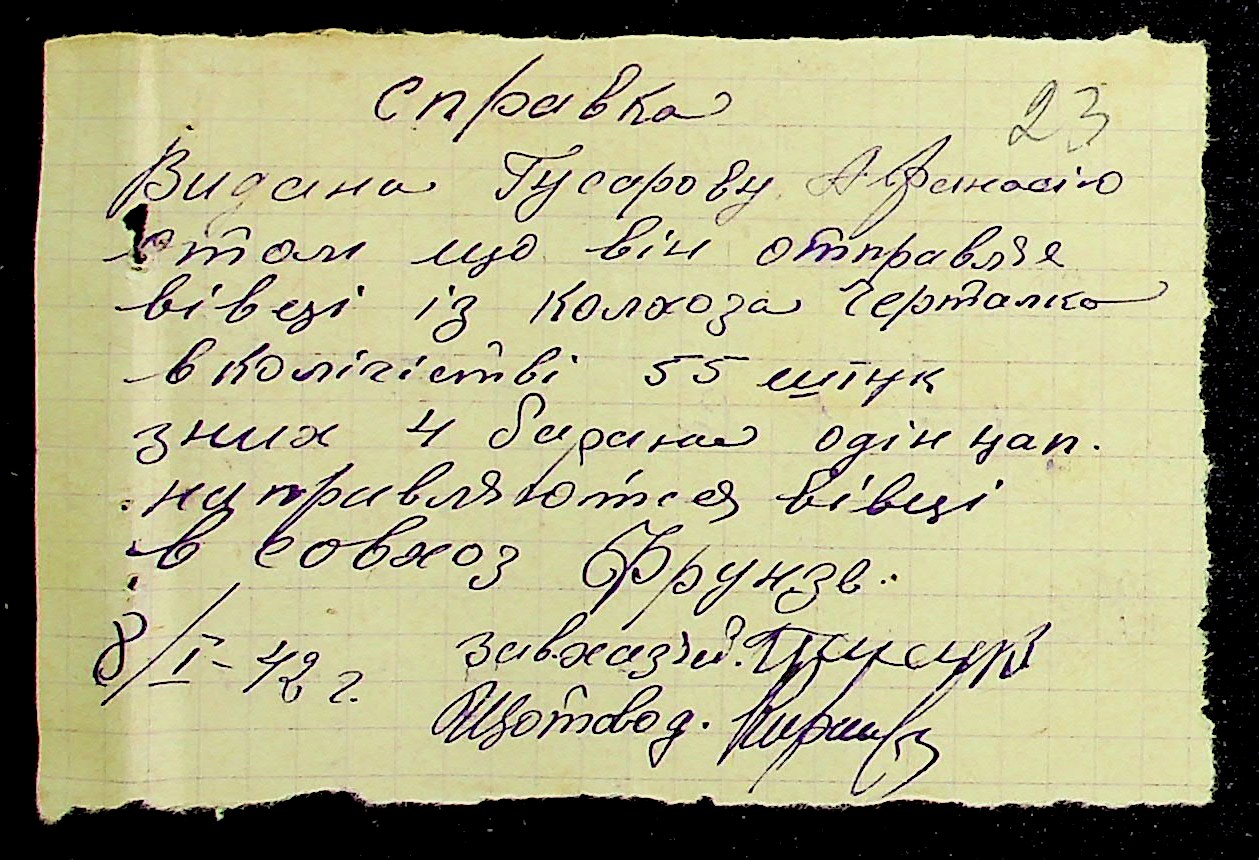 справка
23
Видана Гусарову Афанасію
втом що він отправляя
вівеці із колхоза Чертамка
в колічістві 55 штук
зних 4 барана одін цап.
направляються вівеці
в совхоз Фрунзе.
8/I-42 г. завхаз
Щотовод.